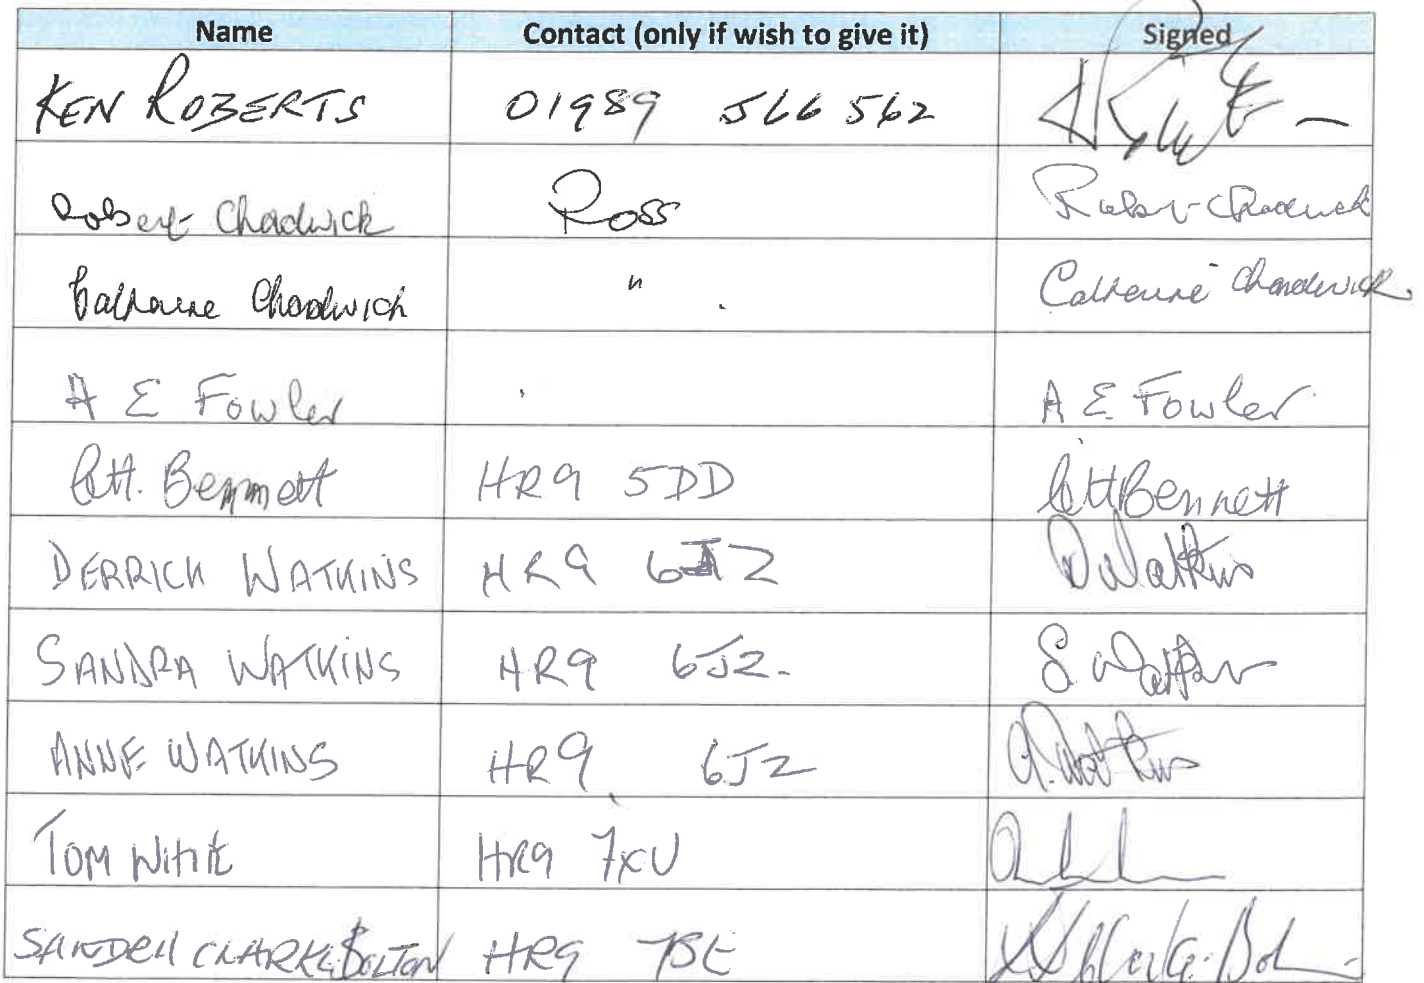 Name Contact (only if wish to give it) Signed
KEN ROBERTS 01989 566 562
Robert Chadwick Ross Robert Chadwick
Catherine Chadwick " Catherine Chadwick
A E Fowler A E Fowler
C.H. Bennett HR9 5DD C H Bennett
DERRICK WATKINS HR9 6JZ D Watkins
SANDRA WATKINS HR9 6JZ. S. Watkins
ANNE WATKINS HR9 6JZ A. Watkins
TOM WHITE HR9 7XU
CLARKE BOLTON HR9 7BE Clarke-Bol